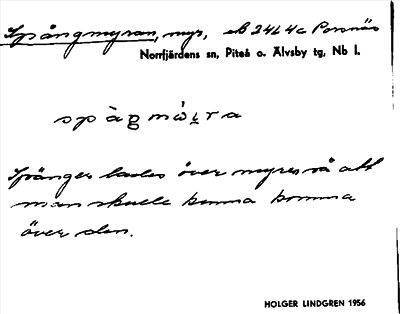 Spångmyran, myr, eB 24L4c Porsnäs
Norrfjärdens sn, Piteå o. Älvsby tg, Nb l.
Spånger lades över myren så att
man skulle kunna komma
över den.
HOLGER LINDGREN 1956